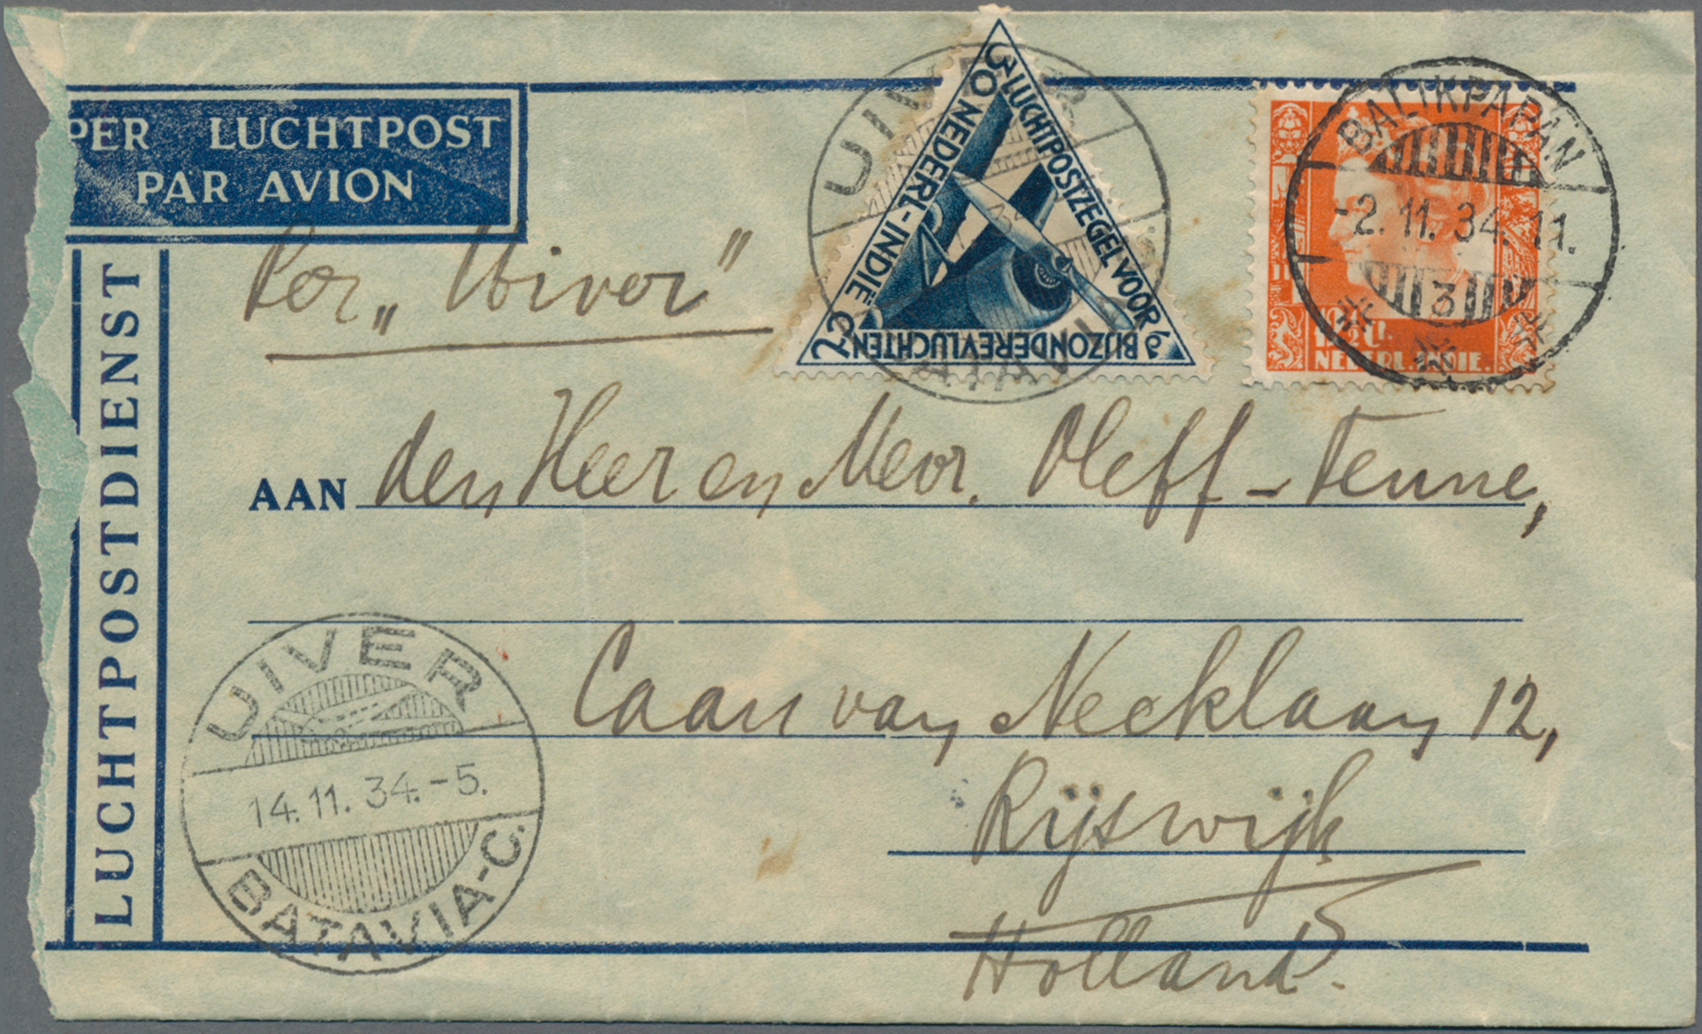 PER LUCHTPOST
PAR AVION
LUCHTPOSTDIENST
Per „Uiver”
UIVER
BATAVIA
30 NEDERL-INDIË C
LUCHTPOSTZEGEL VOOR
BIJZONDERE VLUCHTEN
BALIKPAPAN
-2.11.34.11.
3
12½ Ct.
NEDERL.INDIE.
AAN den Heer en Mevr. Oleff-Tenne,
Caan van Necklaan 12,
Rijswijk
Holland.
UIVER
14.11.34.-5.
BATAVIA-C.